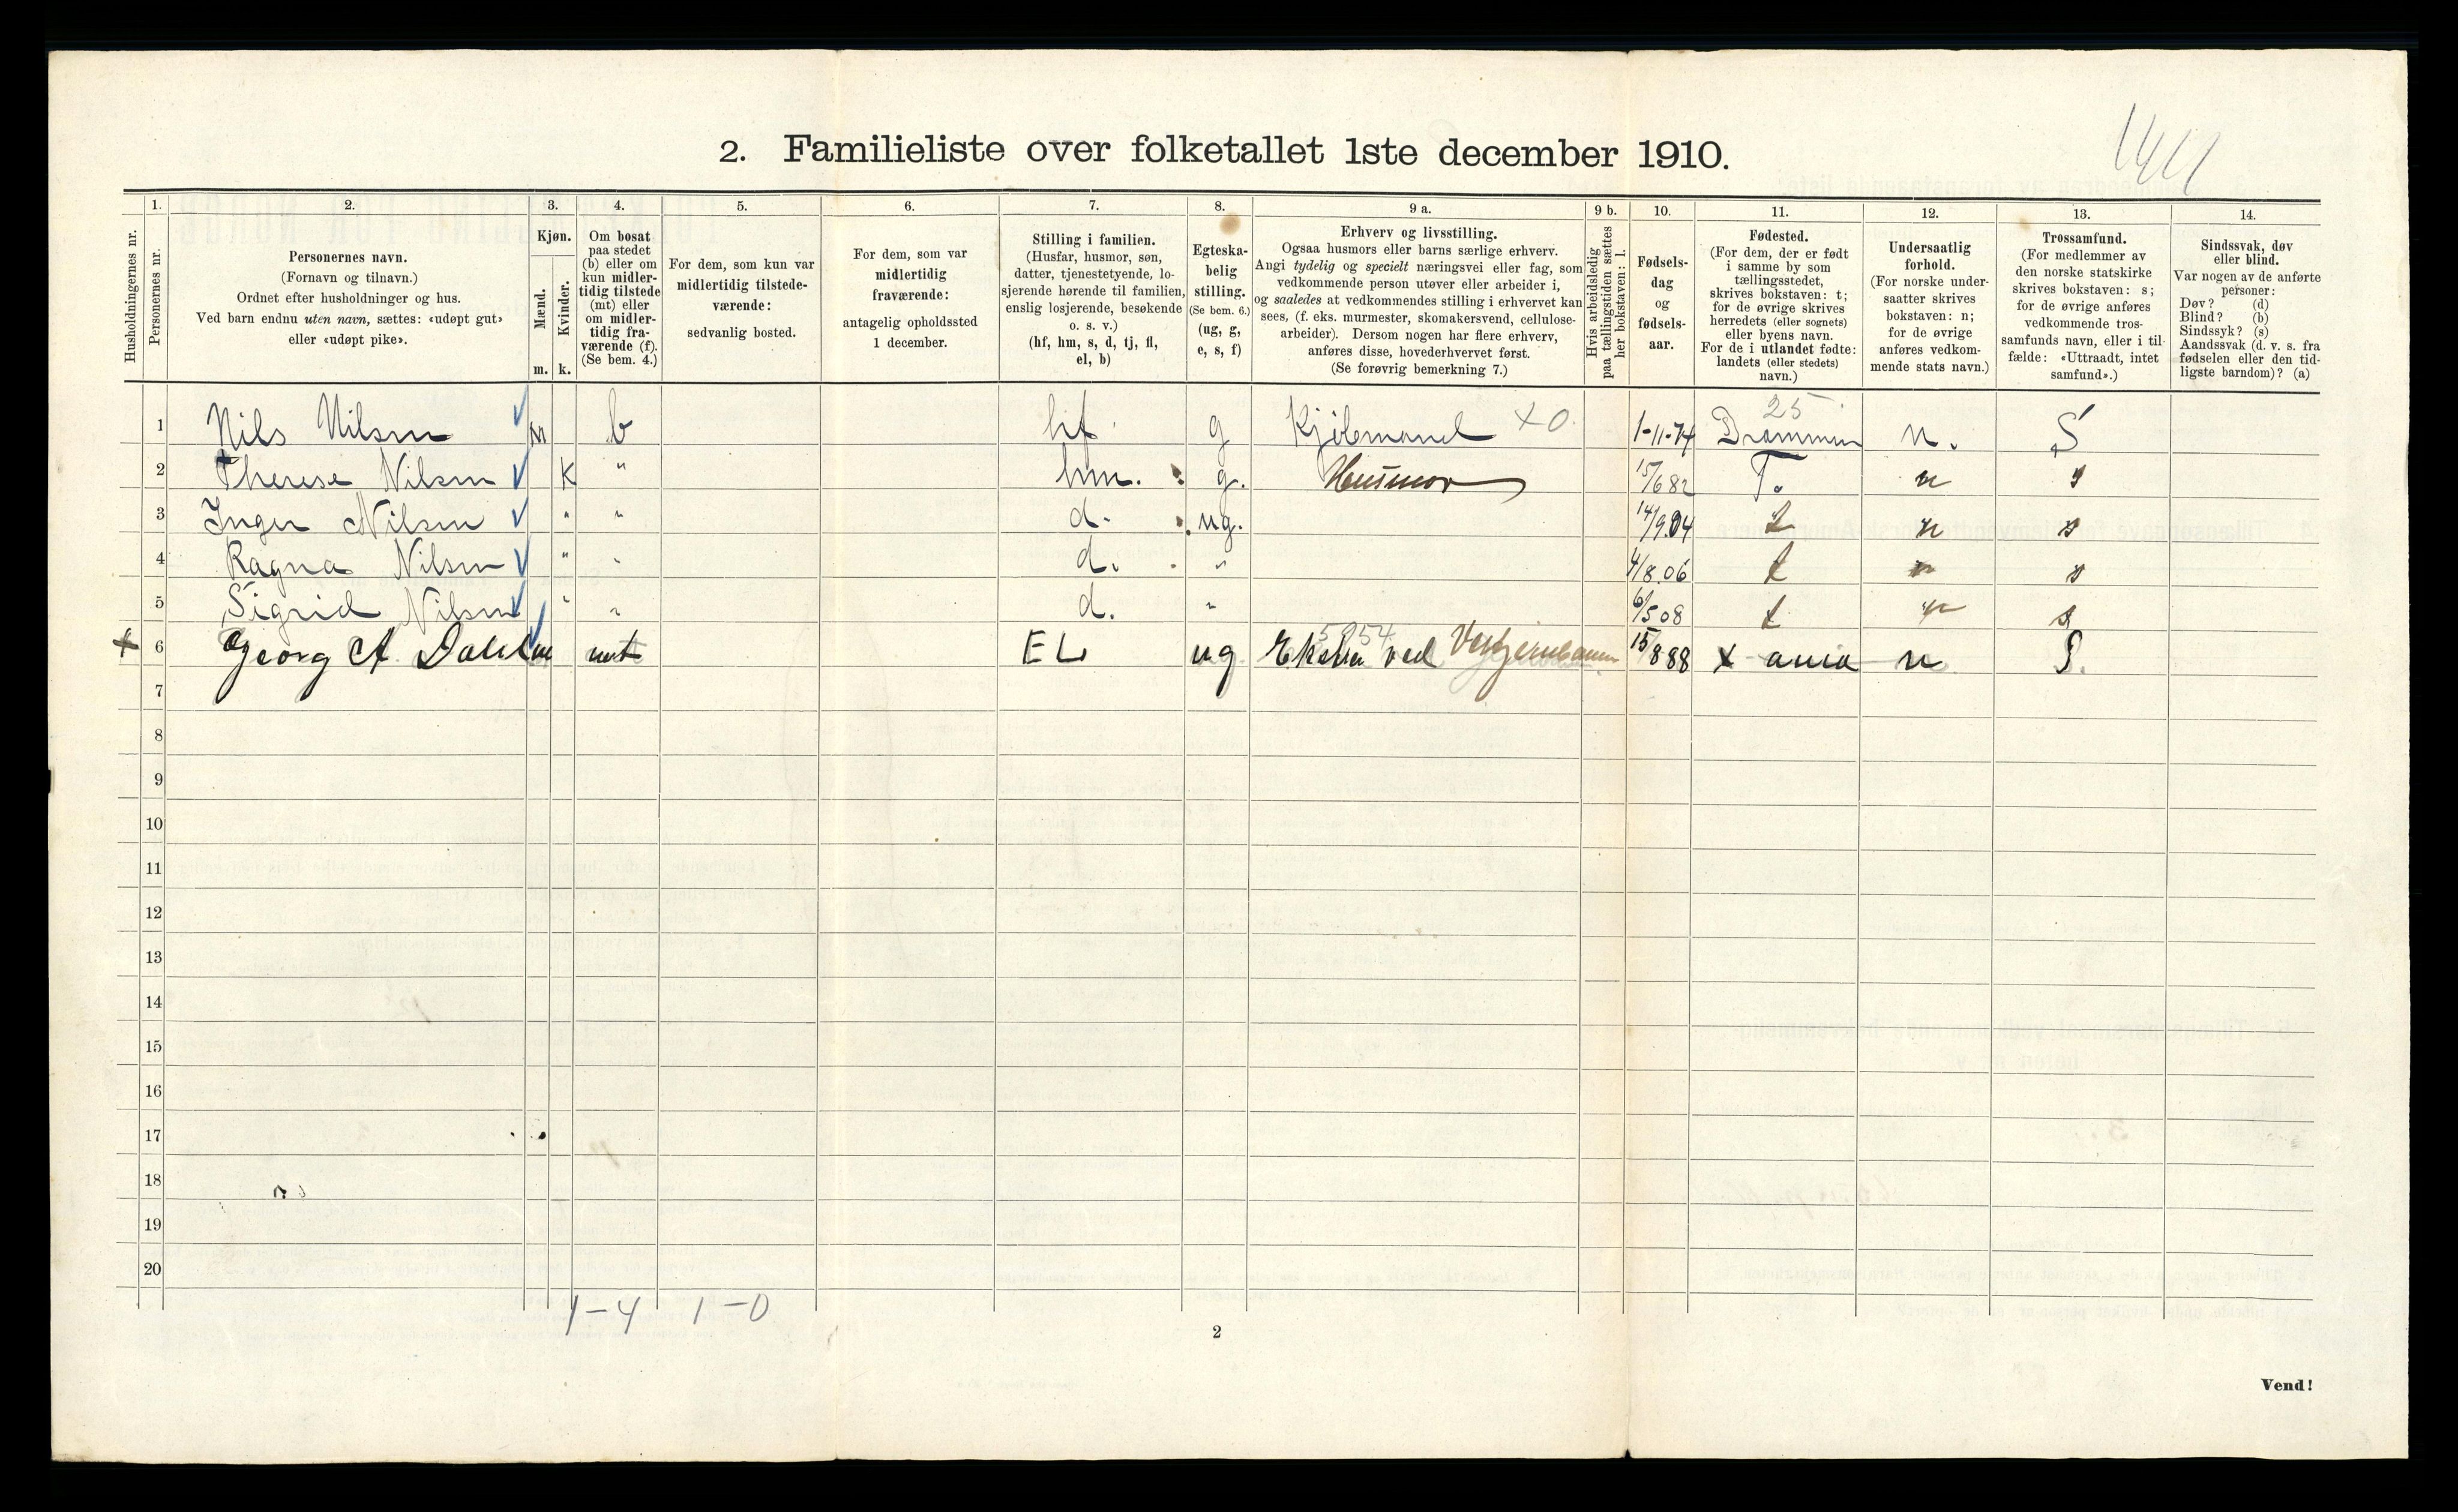 1411
2. Familieliste over folketallet 1ste december 1910.
Husholdningernes nr.
1. Personernes nr.
2. Personernes navn.
(Fornavn og tilnavn.)
Ordnet efter husholdninger og hus.
Ved barn endnu uten navn, sættes: «udøpt gut»
eller «udøpt pike».
3. Kjøn.
Mænd. m.
Kvinder. k.
4. Om bosat
paa stedet
(b) eller om
kun midler-
tidig tilstede
(mt) eller
om midler-
tidig fra-
værende (f).
(Se bem. 4.)
5. For dem, som kun var
midlertidig tilstede-
værende:
sedvanlig bosted.
6. For dem, som var
midlertidig
fraværende:
antagelig opholdssted
1 december.
7. Stilling i familien.
(Husfar, husmor, søn,
datter, tjenestetyende, lo-
sjerende hørende til familien,
enslig losjerende, besøkende
o. s. v.)
(hf, hm, s, d, tj, fl,
el, b)
8. Egteska-
belig
stilling.
(Se bem. 6.)
(ug, g,
e, s, f)
9 a. Erhverv og livsstilling.
Ogsaa husmors eller barns særlige erhverv.
Angi tydelig og specielt næringsvei eller fag, som
vedkommende person utøver eller arbeider i,
og saaledes at vedkommendes stilling i erhvervet kan
sees, (f. eks. murmester, skomakersvend, cellulose-
arbeider). Dersom nogen har flere erhverv,
anføres disse, hovederhvervet først.
(Se forøvrig bemerkning 7.)
9 b. Hvis arbeidsledig
paa tællingstiden sættes
her bokstaven: l.
10. Fødsels-
dag
og
fødsels-
aar.
11. Fødested.
(For dem, der er født
i samme by som
tællingsstedet,
skrives bokstaven: t;
for de øvrige skrives
herredets (eller sognets)
eller byens navn.
For de i utlandet fødte:
landets (eller stedets)
navn.)
12. Undersaatlig
forhold.
(For norske under-
saatter skrives
bokstaven: n;
for de øvrige
anføres vedkom-
mende stats navn.)
13. Trossamfund.
(For medlemmer av
den norske statskirke
skrives bokstaven: s;
for de øvrige anføres
vedkommende tros-
samfunds navn, eller i til-
fælde: «Uttraadt, intet
samfund».)
14. Sindssvak, døv
eller blind.
Var nogen av de anførte
personer:
Døv? (d)
Blind? (b)
Sindssyk? (s)
Aandssvak (d. v. s. fra
fødselen eller den tid-
ligste barndom)? (a)
25
1 Nils Nilsen m b hf g Kjøbmand X0. 1-11-74 Drammen n. S
2 Therese Nilsen K " hm. g. Husmor 15/6 82 T. n s
3 Inger Nilsen " " d. ug. 14/9.04 t n s
4 Ragna Nilsen " " d. " 4/8.06 t n s
5 Sigrid Nilsen " " d. " 6/5 08 t n s
X 6 Georg A m mt EL ug ved 15/8 88 X ania n S.
7
8
9
10
11
12
13
14
15
16
17
18
19
20
1-4 1-0
2
Vend!